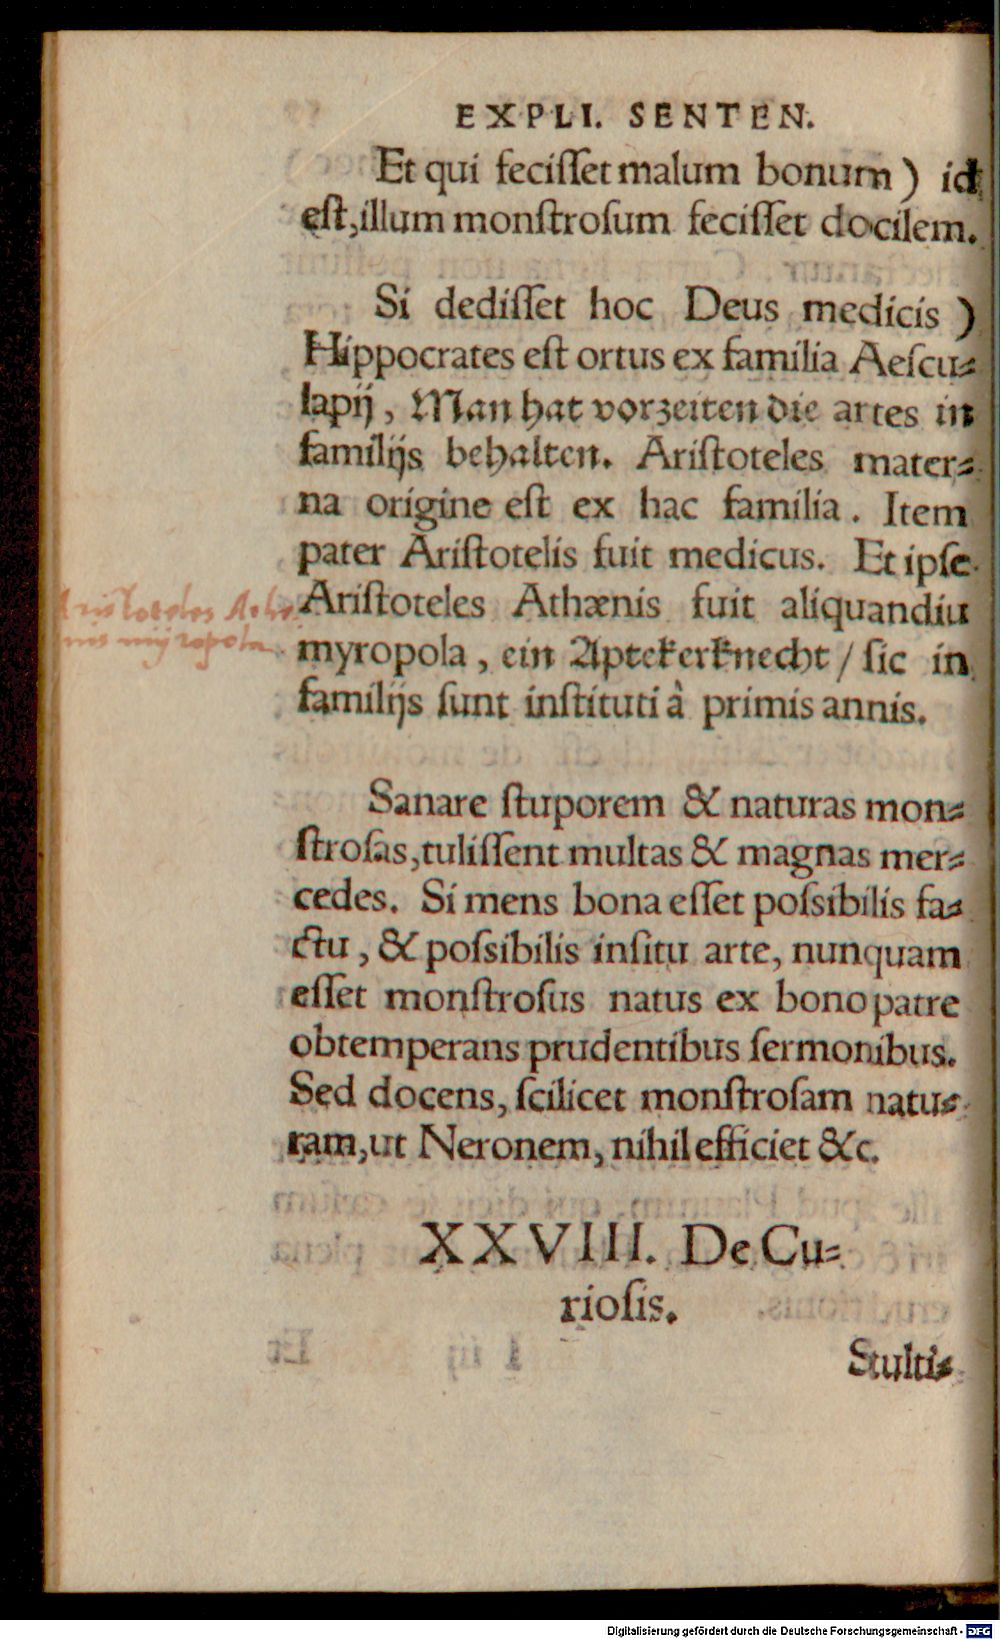 EXPLI. SENTEN.
Et qui feciſſet malum bonum ) id
eſt, illum monſtroſum feciſſet docilem.
Si dediſſet hoc Deus medicis )
Hippocrates eſt ortus ex familia Aeſcu⸗
lapij, Man hat vorzeiten die artes in
familijs behalten. Ariſtoteles mater⸗
na origine eſt ex hac familia. Item
pater Ariſtotelis fuit medicus. Et ipſe
Ariſtoteles Athænis fuit aliquandiu
Aristoteles Athe
nis myropola
myropola, ein Aptekerknecht / ſic in
familijs ſunt inſtituti à primis annis.
Sanare ſtuporem & naturas mon⸗
ſtroſas, tuliſſent multas & magnas mer⸗
cedes. Si mens bona eſſet poſsibilis fa⸗
ctu, & poſsibilis inſitu arte, nunquam
eſſet monſtroſus natus ex bono patre
obtemperans prudentibus ſermonibus.
Sed docens, ſcilicet monſtroſam natu⸗
ram, ut Neronem, nihil efficiet &c.
XXVIII. De Cu⸗
rioſis.
Stulti⸗
Digitalisierung gefördert durch die Deutsche Forschungsgemeinschaft - DFG